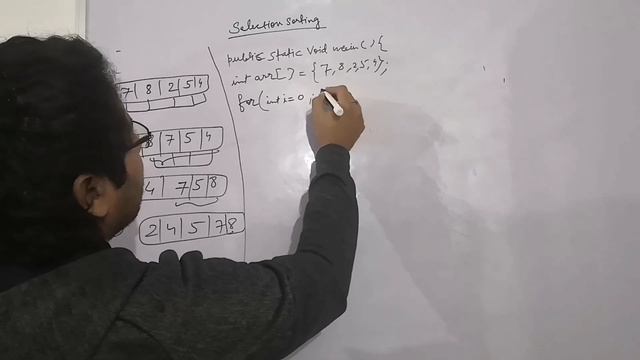 Selection Sorting
public static void main( ) {
int arr[ ] = {7, 8, 2, 5, 4};
for( int i = 0 ;
7 | 8 | 2 | 5 | 4
8 | 7 | 5 | 4
4 | 7 5 8
2 | 4 | 5 | 7 | 8